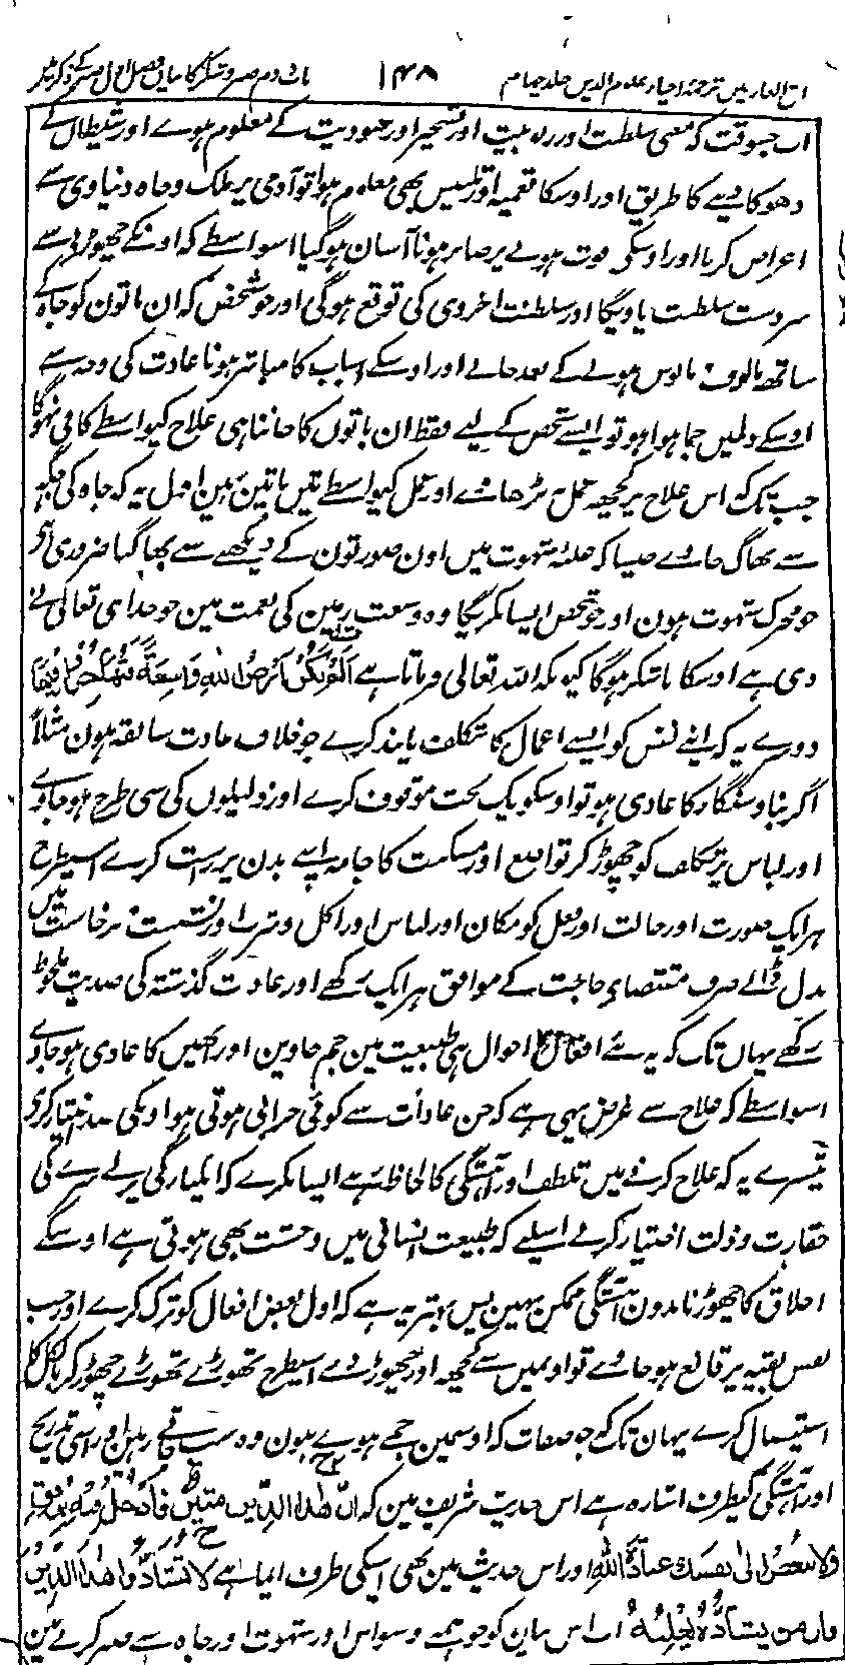 باب دوم صبر و شکر کا بیان فصل اول صبر کے ذکر میں ۱۴۸ ترجمہ احیاء علوم الدین جلد چہارم
اب جسوقت کہ معنی سلطنت اور ربوبیت اور تسخیر اور عبودیت کے معلوم ہوے اور شیطان کے
دھوکا دینے کا طریق اور اوسکا تعمیہ اور تلبیس بھی معلوم ہوا تو آدمی پر ملک و جاہ دنیاوی سے
اعراض کرنا اور اوسکی فوت ہونے پر صابر ہونا آسان ہوگیا اسواسطے کہ اونکے چھوڑنے سے
سردست سلطنت پاویگا اور سلطنت اخروی کی توقع ہوگی اور جو شخص کہ ان باتون کو جاہ کے
ساتھ مالوف مانوس ہونے کے بعد جانے اور اوسکے اسباب کا مباشر ہونا عادت کی وجہ سے
اوسکے دلمیں جما ہوا ہو تو ایسے شخص کے لیے فقط ان باتوں کا جاننا ہی علاج کیواسطے کافی نہوگا
جب تک کہ اس علاج پر کچھ عمل نہ بڑھاوے اور عمل کیواسطے تین باتین ہین اول یہ کہ جاہ کی جگہ
سے بھاگ جاوے جیسا کہ غلبۂ شہوت میں اون صورتون کے دیکھنے سے بھاگنا ضروری ہے
جو محرک شہوت ہون اور جو شخص ایسا نکریگا وہ وسعت زمین کی نعمت مین جو خداے تعالی نے
دی ہے اوسکا ناشکر ہوگا کیونکہ اللہ تعالی فرماتا ہے اَلَمْ تَکُنْ اَرْضُ اللّٰهِ وَاسِعَةً فَتُهَاجِرُوْا فِیْهَا
دوسرے یہ کہ اپنے نفس کو ایسے اعمال کا بتکلف پابند کرے جو خلاف عادت سابقہ ہون مثلاً
اگر بناو سنگار کا عادی ہو تو اوسکو یک لخت موقوف کرے اور ذلیلوں کی سی طرح ہوجاوے
اور لباس پرتکلف کو چھوڑ کر تواضع اور مسکنت کا جامہ اپنے بدن پر راست کرے اسیطرح
ہر ایک صورت اور حالت اور فعل کو مکان اور لباس اور اکل و شرب اور نشست برخاست میں
بدل ڈالے صرف مقتضاے حاجت کے موافق ہر ایک رکھے اور عادت گذشتہ کی ضدیت ملحوظ
رکھے یہاں تک کہ یہ نئے افعال احوال ہی طبیعت مین جم جاوین اور انھیں کا عادی ہوجاوے
اسواسطے کہ علاج سے غرض یہی ہے کہ جن عادات سے کوئی خرابی ہوتی ہو اونکی ضد اختیار کرے
تیسرے یہ کہ علاج کرنے میں تلطف اور آہستگی کا لحاظ رہے ایسا نکرے کہ ایکبارگی پرلے سرے کی
حقارت و ذلت اختیار کرلے اسلیے کہ طبیعت انسانی میں وحشت بھی ہوتی ہے اوسکے
اخلاق کا چھوڑنا بدون آہستگی ممکن نہین پس بہتر یہ ہے کہ اول بعض افعال کو ترک کرے اور جب
نفس بقیہ پر قانع ہوجاوے تو اونمیں سے کچھ اور چھوڑ دے اسیطرح تھوڑے تھوڑے چھوڑ کر بالکل کا
استیصال کرے یہان تک کہ جو صفات کہ اوسمین جمے ہوے ہون وہ سب جاتے رہین اور اسی تدریج
اور آہستگی کیطرف اشارہ ہے اس حدیث شریف مین کہ ان هٰذا الدین متین فأدخل فیه برفق
ولا تبغض الی نفسك عبادة اللّٰه اور اس حدیث مین بھی اسیکی طرف ایما ہے لا تشادوا هذا الدین
فان من یشاده یغلبه اب اس بیان کو جو ہمنے وسواس اور شہوت اور جاہ سے صبر کرنے مین